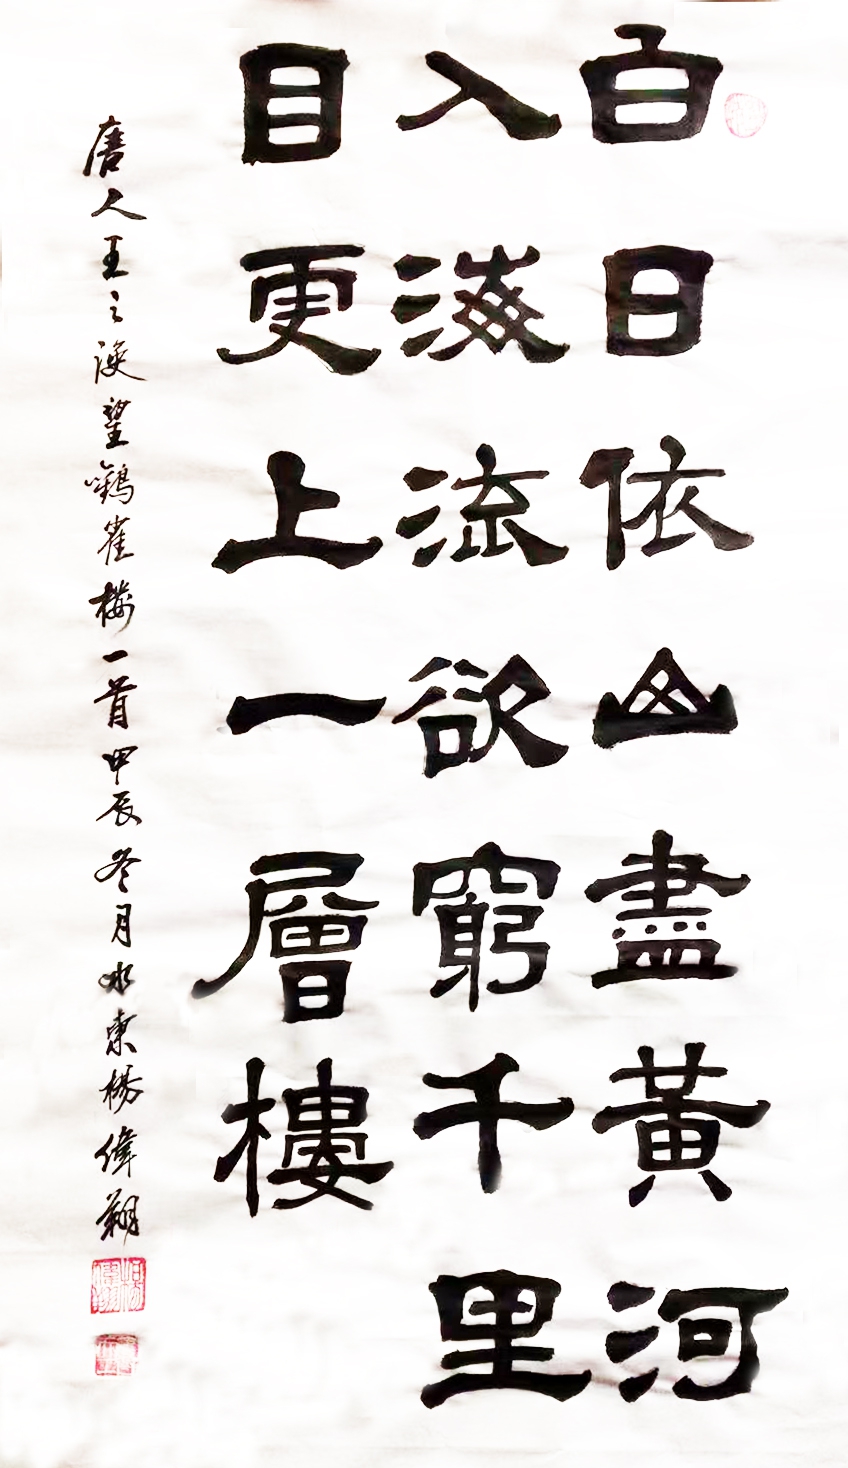 白日依山盡黃河
入海流欲窮千里
目更上一層樓
唐人王之渙望鸛雀樓一首甲辰冬月東楊偉翔